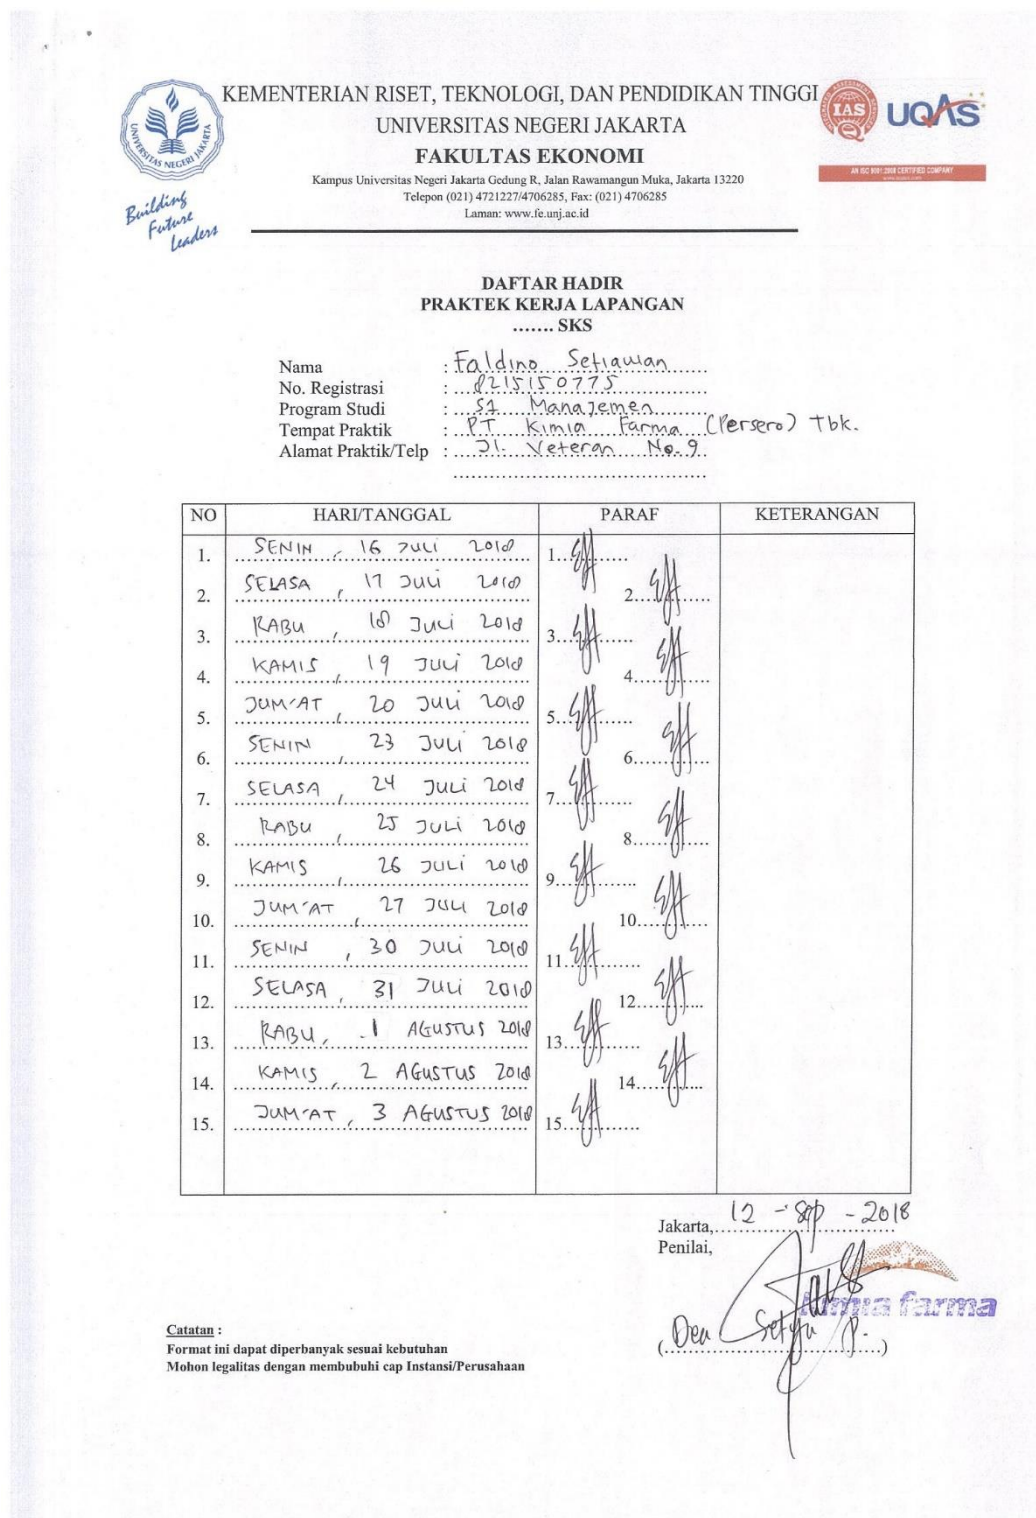 KEMENTERIAN RISET, TEKNOLOGI, DAN PENDIDIKAN TINGGI
UNIVERSITAS NEGERI JAKARTA
FAKULTAS EKONOMI
Kampus Universitas Negeri Jakarta Gedung R, Jalan Rawamangun Muka, Jakarta 13220
Telepon (021) 4721227/4706285, Fax: (021) 4706285
Laman: www.fe.unj.ac.id
UNIVERSITAS NEGERI JAKARTA
Building
Future
Leaders
IAS
UQAS
AN ISO 9001:2008 CERTIFIED COMPANY
DAFTAR HADIR
PRAKTEK KERJA LAPANGAN
....... SKS
Nama : Faldino Setiawan
No. Registrasi : 8215150775
Program Studi : S1 Manajemen
Tempat Praktik : PT Kimia Farma (Persero) Tbk.
Alamat Praktik/Telp : Jl. Veteran No. 9
NO HARI/TANGGAL PARAF KETERANGAN
1. SENIN, 16 JULI 2018 1.
2. SELASA, 17 JULI 2018 2.
3. RABU, 18 JULI 2018 3.
4. KAMIS, 19 JULI 2018 4.
5. JUM'AT, 20 JULI 2018 5.
6. SENIN, 23 JULI 2018 6.
7. SELASA, 24 JULI 2018 7.
8. RABU, 25 JULI 2018 8.
9. KAMIS, 26 JULI 2018 9.
10. JUM'AT, 27 JULI 2018 10.
11. SENIN, 30 JULI 2018 11.
12. SELASA, 31 JULI 2018 12.
13. RABU, 1 AGUSTUS 2018 13.
14. KAMIS, 2 AGUSTUS 2018 14.
15. JUM'AT, 3 AGUSTUS 2018 15.
Jakarta, 12 - Sep - 2018
Penilai,
kimia farma
(Dea Setya P.)
Catatan :
Format ini dapat diperbanyak sesuai kebutuhan
Mohon legalitas dengan membubuhi cap Instansi/Perusahaan